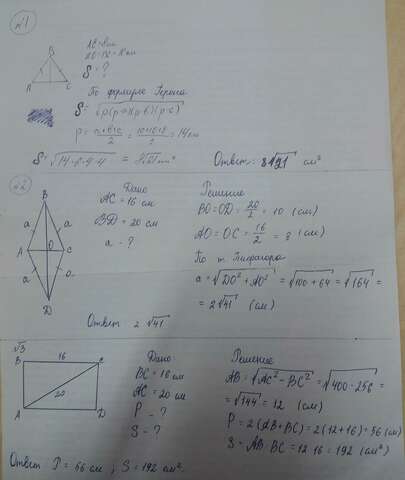 №1
B
A
C
S = ?
По формуле Герона
S = √p(p-a)(p-b)(p-c)
p = a+b+c/2 = 10+10+8/2 = 14 см
S = √14·6·4·4
Ответ: 8√21 см²
№2
B
a a
A O C
a a
D
Дано
AC = 16 см
BD = 20 см
a - ?
Решение
BO = OD = 20/2 = 10 (см)
AO = OC = 16/2 = 8 (см)
По т. Пифагора
a = √DO² + AO² = √100 + 64 = √164 =
= 2√41 (см)
Ответ 2√41
√3
B 16 C
20
A D
Дано
BC = 16 см
AC = 20 см
P - ?
S - ?
Решение
AB = √AC² - BC² = √400 - 256 =
= √144 = 12 (см)
P = 2(AB+BC) = 2(12+16) = 56 (см)
S = AB·BC = 12·16 = 192 (см²)
Ответ P = 56 см ; S = 192 см²